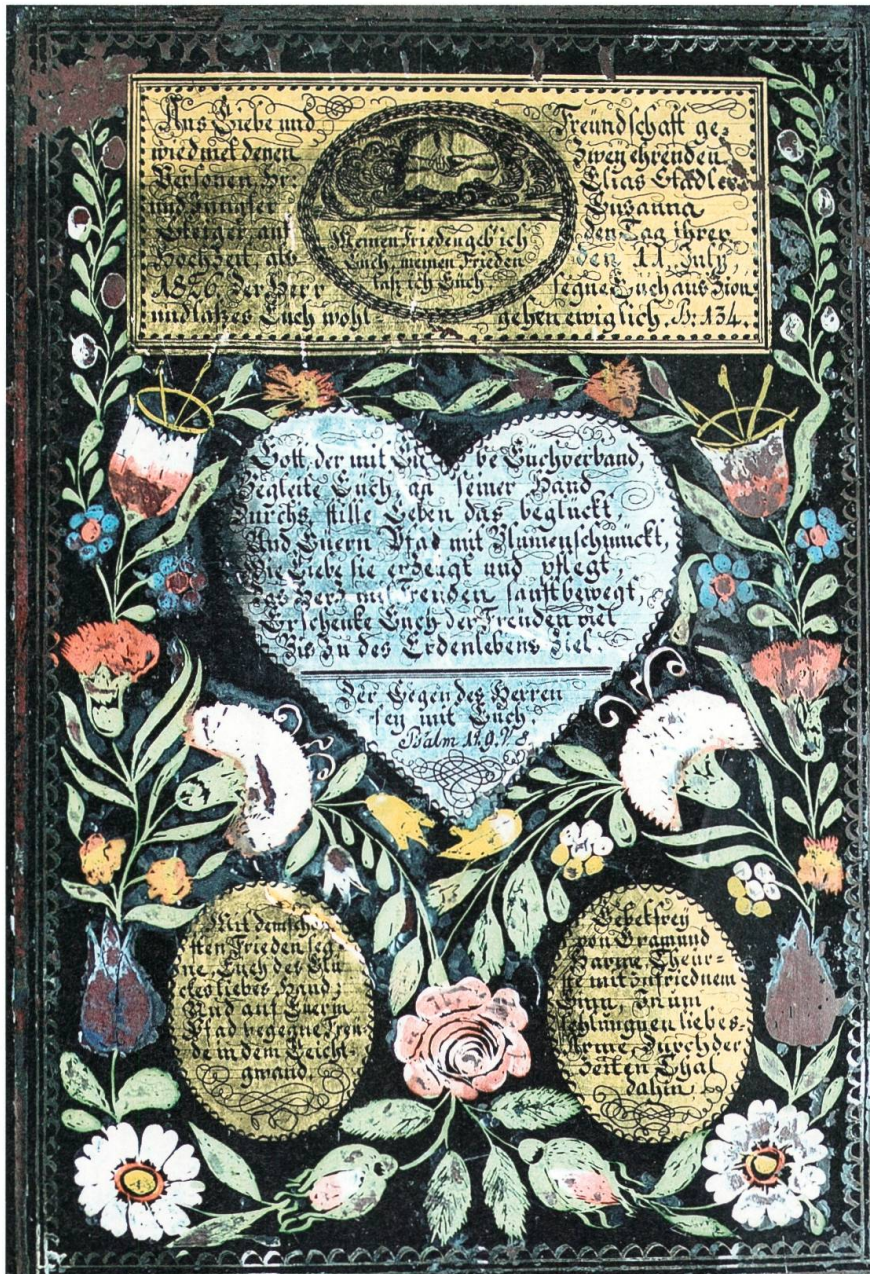 Aus Liebe und Freündschaft ge-
wiedmet denen Zwey ehrenden
Personen, Hr: Elias Stadler
und Jungfer Susanna
Steiger, auf den Tag ihrer
Hochzeit, als den 11. July,
1826. Der Herr segne Euch aus Zion
und laß es Euch wohl gehen ewiglich. Ps: 134.
Meinen Frieden geb' ich
Euch, meinen Frieden
laß ich Euch
Gott, der mit Liebe Euch verband,
Begleite Euch, an seiner Hand
Durchs stille Leben das beglückt,
Und Euern Pfad mit Blumen schmückt,
Wie Liebe sie erzeugt und pflegt,
Das Herz mit Freuden sanft bewegt,
Er schenke Euch der Freüden viel
Bis zu des Erdenlebens Ziel.
Der Segen des Herren
sey mit Euch.
Psalm 129. V. 8.
Mit dem schön-
sten Frieden seg-
ne, Euch des Glü-
ckes liebes Hand;
Und auf Euerm
Pfad begegne Freu-
de in dem Leicht-
gwand.
Gebet frey
von Gram und
Harme, Theur-
ste mit zufriednem
Sinn, In um
schlunguen liebes-
Arme, Durch der
Zeiten Thal
dahin